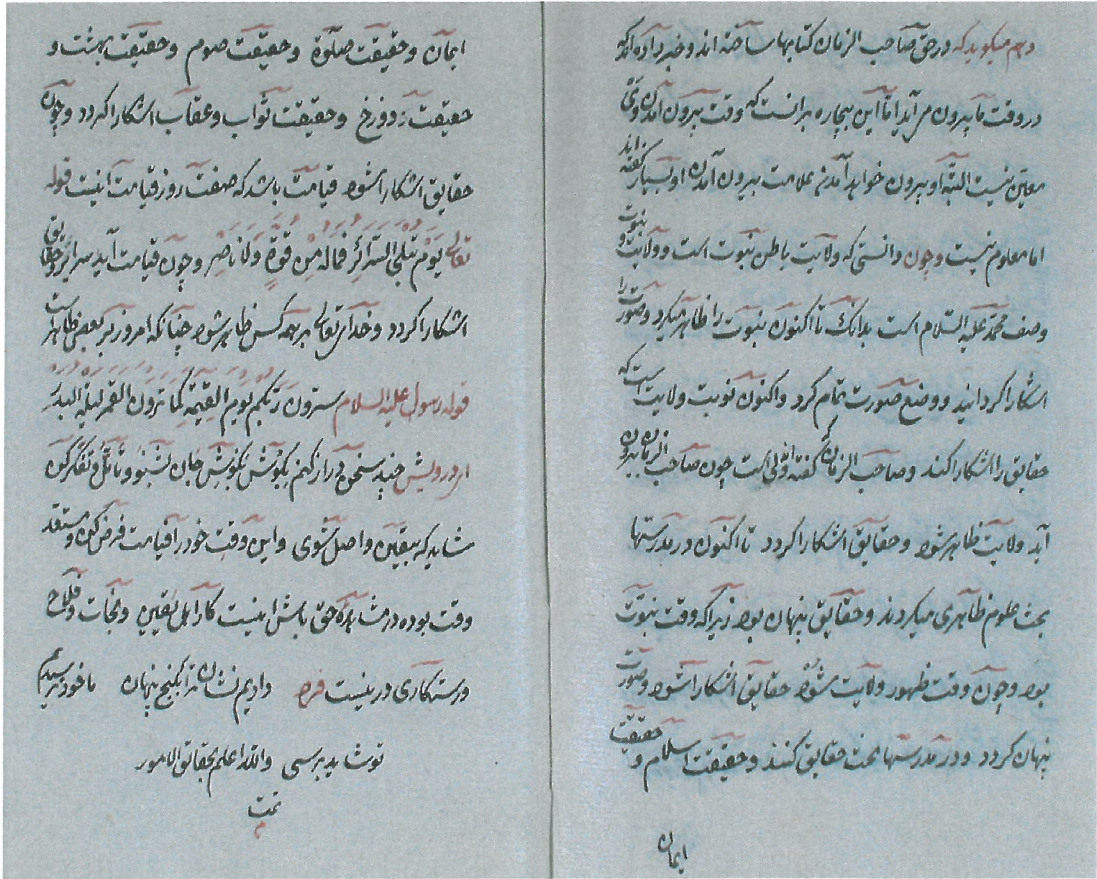 و هم میکوید که در حق صاحب الزمان کتابها ساخته اند و خبر داده اند که
در وقت ما بیرون می آید اما این بیچاره بر انست که وقت بیرون آمدن وی
معین نیست البته او بیرون خواهد آمدنه علامت بیرون آمدن او بسیار گفته اند
اما معلوم نیست و چون دانستی که ولایت باطن نبوت است و ولایت و نبوت
وصف محمد علیه السلام است بدانک تا اکنون نبوت را ظاهر میکرد و صورت را
اشکارا کردانید و وضع صورت تمام کرد و اکنون نوبت ولایت است که
حقایق را اشکارا کند و صاحب الزمان که گفته ولی است چون صاحب الزمان بیرون
آید ولایت ظاهر شود و حقایق اشکارا کردد تا اکنون در مدرسها
بحث علوم ظاهری میکردند و حقایق پنهان بود زیرا که وقت نبوت
بود و چون وقت ظهور ولایت شود حقایق اشکارا شود و صورت
پنهان کردد و در مدرسها بحث حقایق کنند و حقیقت اسلام و حقیقت
ایمان
ایمان و حقیقت صلوة و حقیقت صوم و حقیقت بهشت و
حقیقت دوزخ و حقیقت ثواب و عقاب اشکارا کردد و چون
حقایق اشکارا شود قیامت باشد که صفت روز قیامت اینست قوله
تعالی يَوْمَ تُبْلَى السَّرَائِرُ فَمَالَهُ مِنْ قُوَّةٍ وَلَا نَاصِرٍ و چون قیامت آید سرایر و حقایق
اشکارا کردد و خدای تعالی بر همه کس ظاهر شود چنانکه امروز بر بعضی ظاهر است
قوله رسول علیه السلام سترون ربکم یوم القیمة کما ترون القمر لیلة البدر
ای درویش چند سخن دراز کنم بکوش بکوش جان بشنو و تأمل و تفکر کن
شاید که بیقین واصل شوی و این وقت خود را قیامت فرض کن و مستعد
وقت بوده در مشاهده حق باش اینست کار اهل یقین و نجات و فلاح
و رستکاری درینست فرد دادیم نشان ترا بکنج پنهان ما خود نرسیدیم
تو شاید برسی والله اعلم بحقائق الامور
تمت
م